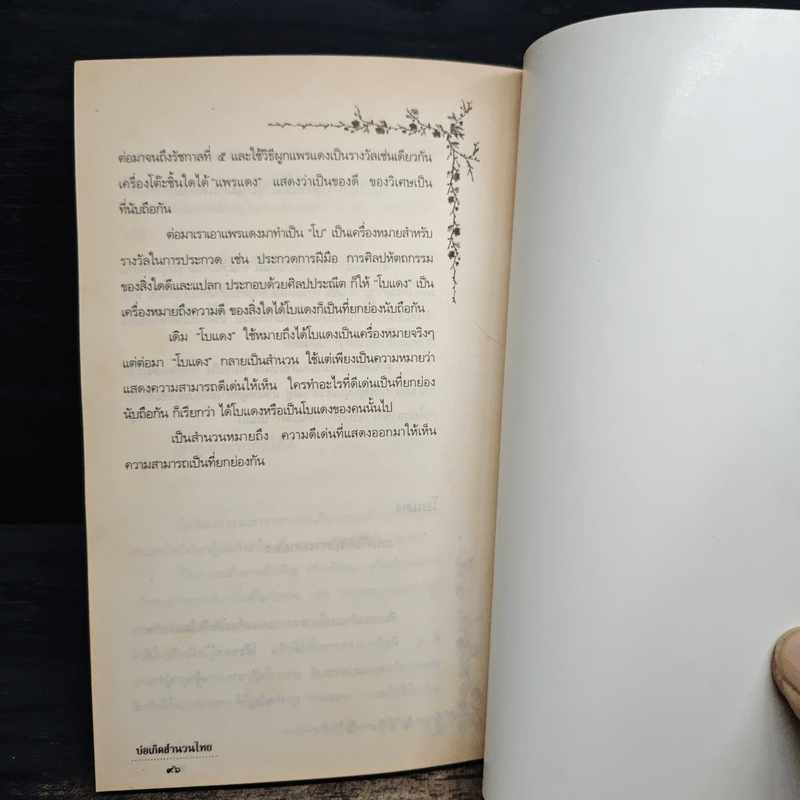 ต่อมาจนถึงรัชกาลที่ ๕ และใช้วิธีผูกแพรแดงเป็นรางวัลเช่นเดียวกัน
เครื่องโต๊ะชิ้นใดได้ "แพรแดง" แสดงว่าเป็นของดี ของวิเศษเป็น
ที่นับถือกัน
ต่อมาเราเอาแพรแดงมาทำเป็น "โบ" เป็นเครื่องหมายสำหรับ
รางวัลในการประกวด เช่น ประกวดการฝีมือ การศิลปหัตถกรรม
ของสิ่งใดดีและแปลก ประกอบด้วยศิลปประณีต ก็ให้ "โบแดง" เป็น
เครื่องหมายถึงความดี ของสิ่งใดได้โบแดงก็เป็นที่ยกย่องนับถือกัน
เดิม "โบแดง" ใช้หมายถึงได้โบแดงเป็นเครื่องหมายจริงๆ
แต่ต่อมา "โบแดง" กลายเป็นสำนวน ใช้แต่เพียงเป็นความหมายว่า
แสดงความสามารถดีเด่นให้เห็น ใครทำอะไรที่ดีเด่นเป็นที่ยกย่อง
นับถือกัน ก็เรียกว่า ได้โบแดงหรือเป็นโบแดงของคนนั้นไป
เป็นสำนวนหมายถึง ความดีเด่นที่แสดงออกมาให้เห็น
ความสามารถเป็นที่ยกย่องกัน
บ่อเกิดสำนวนไทย
๙๖